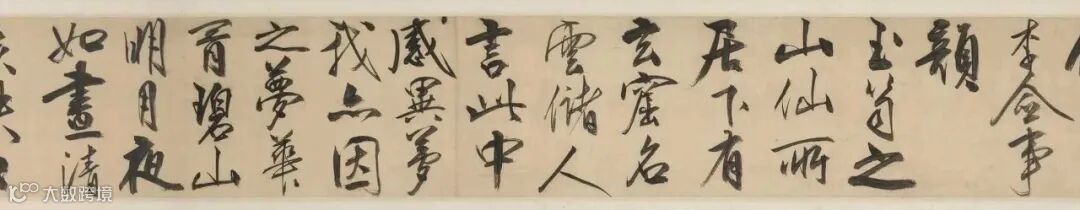 李僉事
玉笥之
山仙所
居下有
玄窟名
雲儲人
言此中
感異夢
我亦因
之夢華
胥碧山
明月夜
如畫清
大数跨境